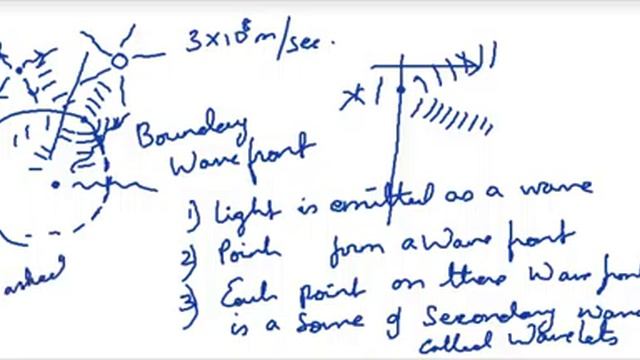 3×10⁸m/sec.
Boundary
Wavefront
1) Light is emitted as a wave
2) Points form a Wave front
3) Each point on there Wave fron
is a Source of Secondary wave
called Wavelets